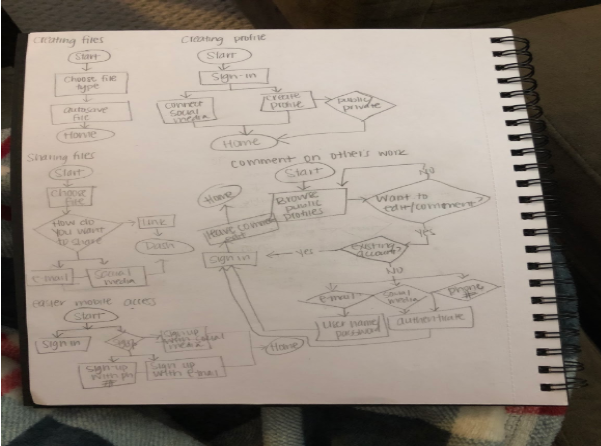 Creating files
Start
Choose file
type
autosave
file
Home
Creating profile
Start
Sign-in
Connect
social
media
create
profile
public/
private
Home
Sharing files
Start
Choose
file
How do
you want
to share
Link
Dash
E-mail
social
media
comment on other's work
Start
Browse
public
profiles
Want to
edit/comment?
NO
Yes
existing
account?
Yes
Sign in
Home
NO
e-mail
Social
media
phone
#
User name/
password
authenticate
Home
Easier mobile access
Start
Sign in
Sign-up
with ph
#
Sign up
with E-mail